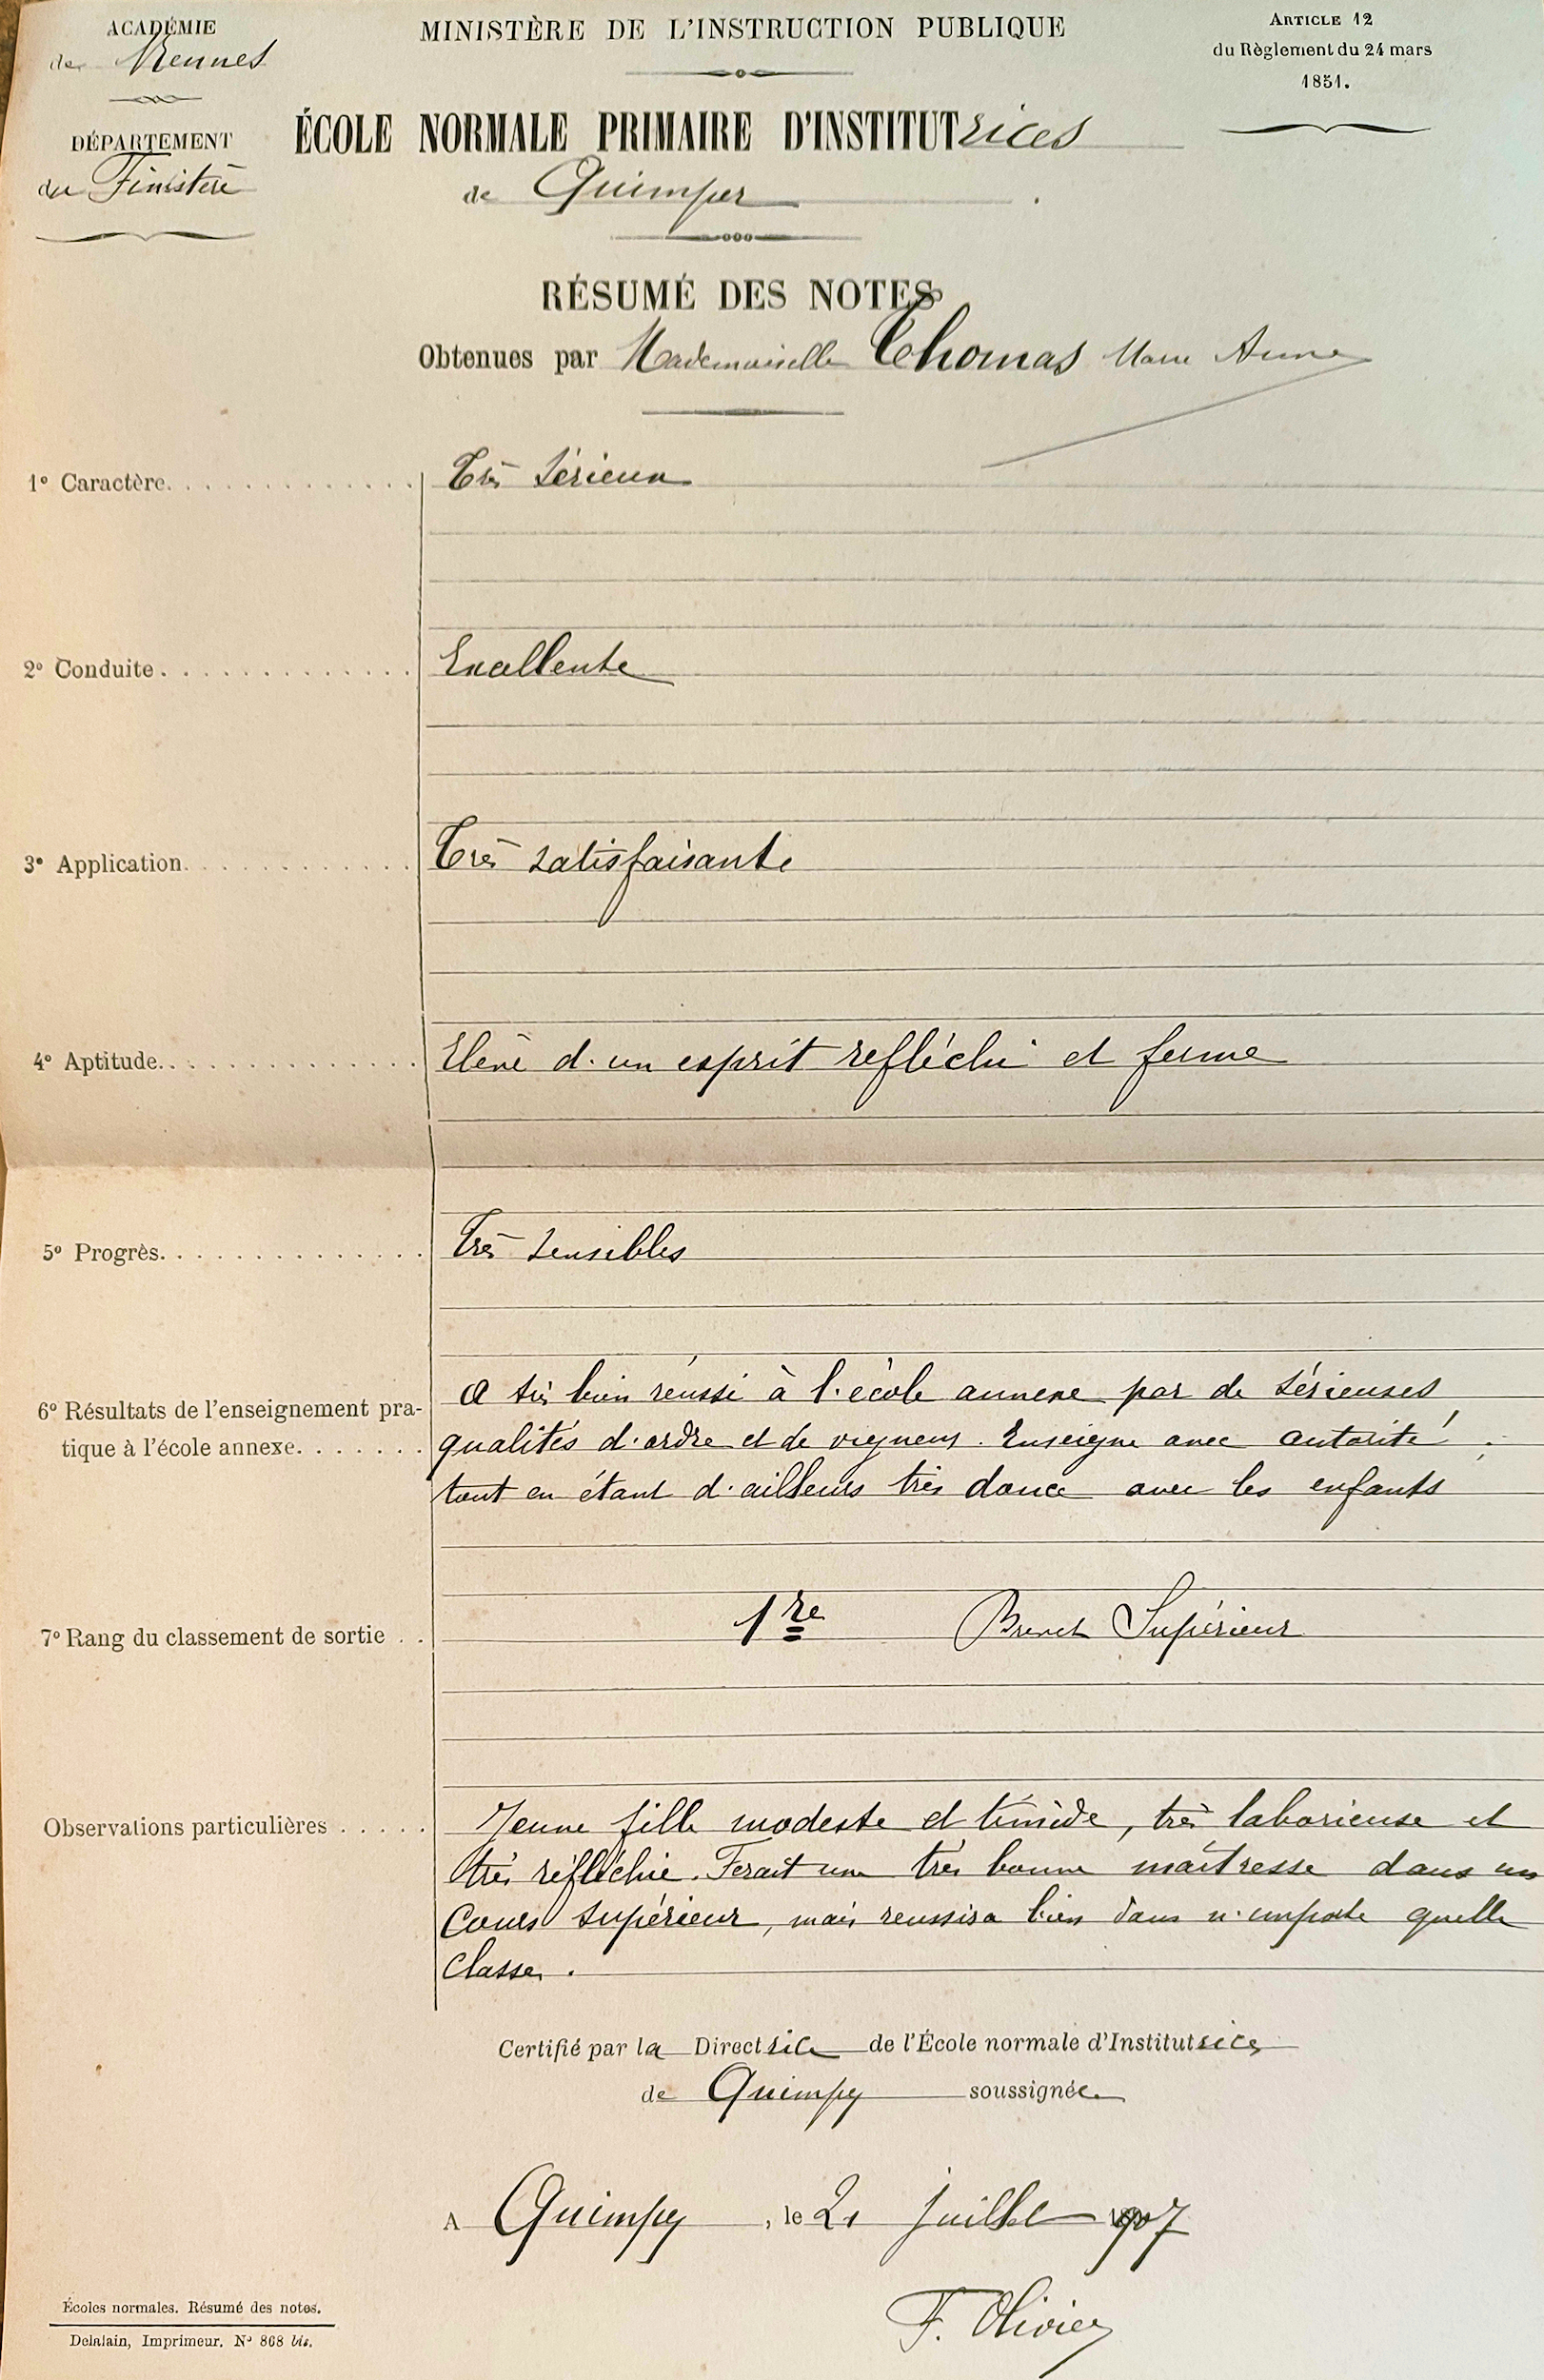 ACADÉMIE
de Rennes
DÉPARTEMENT
du Finistère
MINISTÈRE DE L'INSTRUCTION PUBLIQUE
ÉCOLE NORMALE PRIMAIRE D'INSTITUTrices
de Quimper .
ARTICLE 12
du Règlement du 24 mars
1851.
RÉSUMÉ DES NOTES
Obtenues par Mademoiselle Thomas Marie Anne
1º Caractère. Très sérieux
2º Conduite. Excellente
3º Application. Très satisfaisante
4º Aptitude. Elève d'un esprit refléchi et ferme
5º Progrès. Très sensibles
6º Résultats de l'enseignement pra-
tique à l'école annexe.
A très bien réussi à l'école annexe par de sérieuses
qualités d'ordre et de vigueur. Enseigne avec autorité,
tout en étant d'ailleurs très douce avec les enfants
7º Rang du classement de sortie . . 1re Brevet Supérieur
Observations particulières . . . . .
Jeune fille modeste et timide, très laborieuse et
très réfléchie. Ferait une très bonne maîtresse dans un
Cours supérieur, mais reussira bien dans n'importe quelle
classe.
Certifié par la Directrice de l'École normale d'Institutrices
de Quimper soussignée.
A Quimper, le 21 juillet 1907
F. Olivier
Écoles normales. Résumé des notes.
Delalain, Imprimeur. Nº 868 bis.